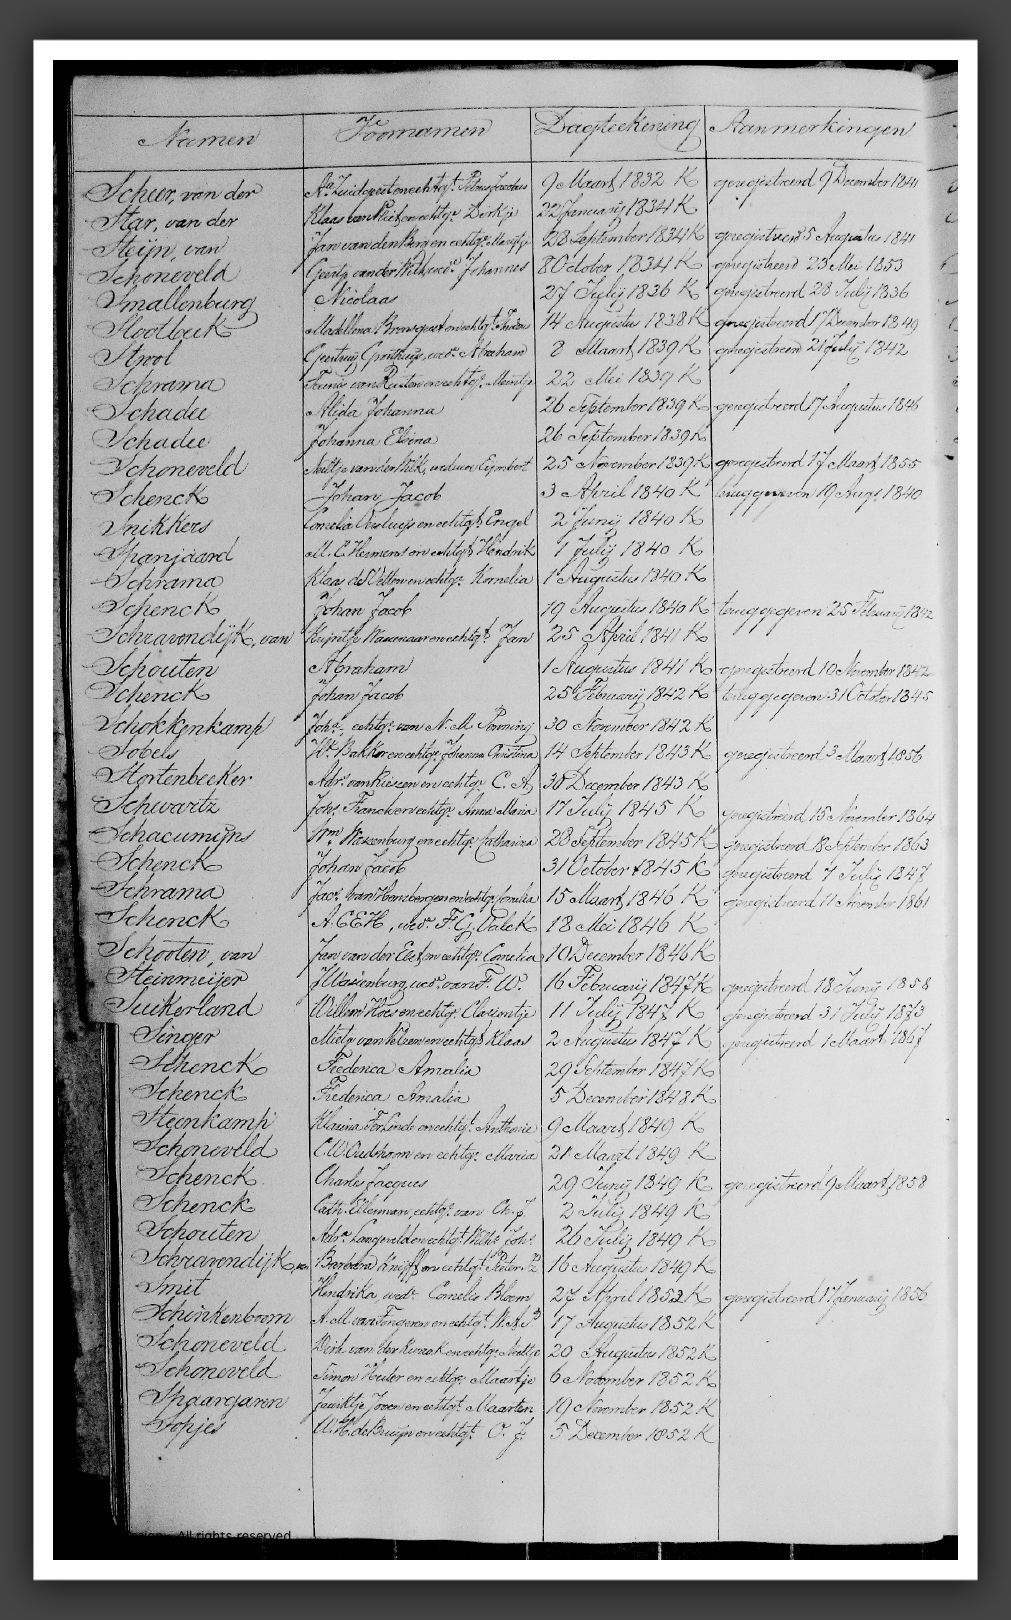 Namen Voornamen Dagteekening Aanmerkingen
Scheer, van der Aa Zuidgeest en echtgt. Petrus Jacobus 9 Maart 1832 K geregistreerd 9 December 1841
Star, van der Klaas van Vliet en echtge. Dirkje 22 January 1834 K
Steijn, van Jan van den Berg en echtge. Maartje 28 September 1834 K geregistreerd 5 Augustus 1841
Schoneveld van der Wilk, wede. Johannes 8 October 1834 K geregistreerd 23 Mei 1853
Smallenburg Nicolaas 27 Julij 1836 K geregistreerd 28 Julij 1836
Slootbeek Madellena en echtgt. 14 Augustus 1838 K geregistreerd 17 December 1849
Stroot Geertruij Groothuijs, wede. Abraham 8 Maart 1839 K geregistreerd 21 Julij 1842
Schrama Teunis van en echtge. Meintje 22 Mei 1839 K
Schadee Alida Johanna 26 September 1839 K geregistreerd 17 Augustus 1846
Schadee Johanna Elvina 26 September 1839 K
Schoneveld Neeltje van der Wilk, weduwe Cijmbert 25 November 1839 K geregistreerd 17 Maart 1855
Schenck Johan Jacob 3 April 1840 K teruggegeven 19 Augs. 1840
Snikkers Cornelia Versluijs en echtgt. Engel 2 Junij 1840 K
Spanjaard M. C. Hemmes en echtgt. Hendrik 1 Julij 1840 K
Schrama Klaas de Vetten en echtge. Kornelia 1 Augustus 1840 K
Schenck Johan Jacob 19 Augustus 1840 K teruggegeven 25 Februarij 1842
Schravondijk, van Krijntje Wassenaar en echtgt. Jan 25 April 1841 K
Schouten Abraham 1 Augustus 1841 K geregistreerd 10 November 1842
Schenck Johan Jacob 25 Februarij 1842 K teruggegeven 31 October 1845
Schokkenkamp Joha., echtge. van N. M. Penning 30 November 1842 K
Sobels Hk. Bakker en echtge. Johanna Christina 14 September 1843 K geregistreerd 3 Maart 1856
Stortenbeeker Adrs. van Riessen en echtge. C. A. 30 December 1843 K
Schwartz Johs. Francken en echtge. Anna Maria 17 July 1845 K geregistreerd 15 November 1864
Schacumijns Wm. Wassenburg en echtge. Catharina 28 September 1845 K geregistreerd 18 September 1863
Schenck Johan Jacob 31 October 1845 K geregistreerd 7 Julij 1847
Schrama Jacs. van Hensbergen en echtge. Cornelia 15 Maart 1846 K geregistreerd 11 November 1861
Schenck A. C. E. H., wede. F. G. Valck 18 Mei 1846 K
Schooten, van Jan van der Eest en echtge. Cornelia 10 December 1846 K
Steinmeijer J Wassenburg, wede. van F. W. 16 Februarij 1847 K geregistreerd 18 Junij 1858
Suikerland Willem Hoes en echtge. Clasontje 11 Julij 1847 K geregistreerd 31 Julij 1873
Singer Mietje van Velzen en echtgt. Klaas 2 Augustus 1847 K geregistreerd 1 Maart 1867
Schenck Frederica Amalia 29 September 1847 K
Schenck Frederica Amalia 5 December 1848 K
Steenkamp Klasina Ter Linde en echtgt. Anthonie 9 Maart 1849 K
Schoneveld C. W. Oudshoorn en echtge. Maria 21 Maart 1849 K
Schenck Charles Jacques 29 Junij 1849 K geregistreerd 9 Maart 1858
Schenck Cath. Uleman, echtge. van Ch. J. 2 Julij 1849 K
Schouten Adra. Langeveld en echtgt. Wilhs. Johs. 26 Julij 1849 K
Schravendijk, van Barbara Knijff en echtgt. Pieter Pz 16 Augustus 1849 K
Smit Hendrika wede. Cornelis Bloem 27 April 1852 K geregistreerd 17 Januarij 1856
Schinkenboom A. M. van Tongeren en echtgt. 17 Augustus 1852 K
Schoneveld Dirk van der en echtge. Neeltje 20 Augustus 1852 K
Schoneveld Simon Heuler en echtge. Maartje 6 November 1852 K
Spaargaren Jannetje Joren en echtgt. Maarten 19 November 1852 K
Sopjes W. H. de Bruijn en echtgt. O. J. 5 December 1852 K
All rights reserved